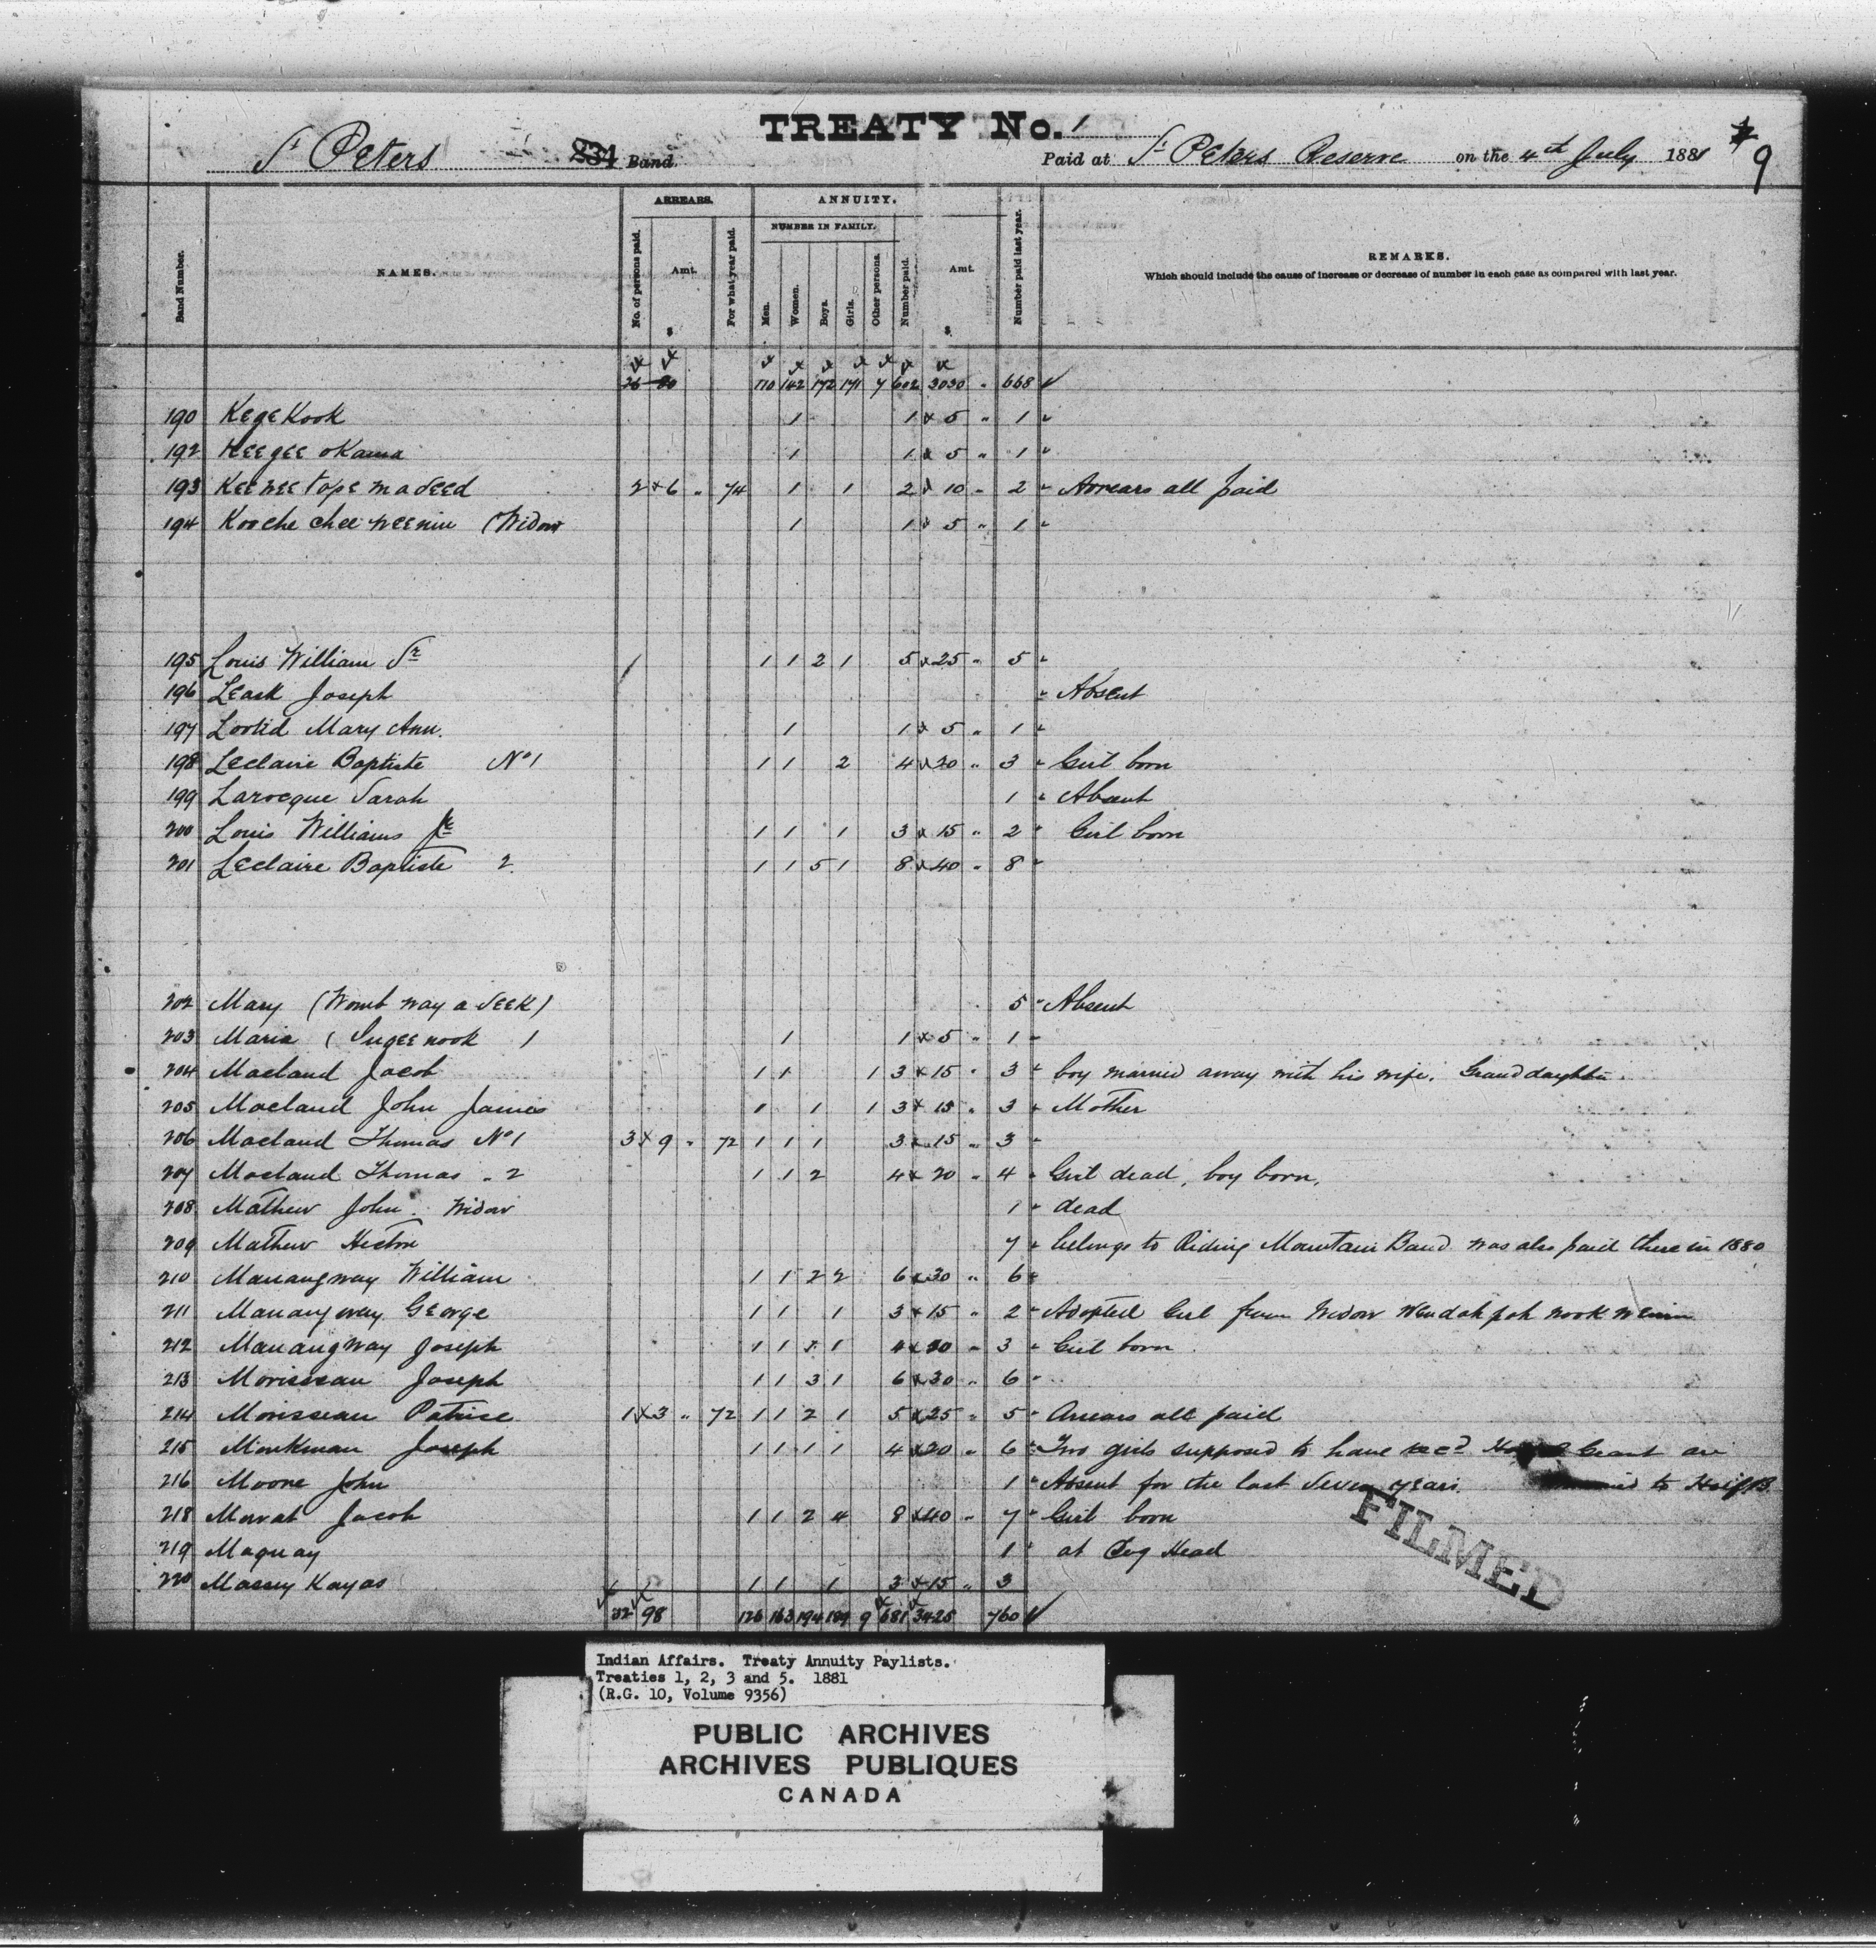 TREATY No. 1
St Peters 234 Band. Paid at St Peters Reserve on the 4th July 1881 9
ARREARS. ANNUITY.
NUMBER IN FAMILY.
Band Number. NAMES. No. of persons paid. Amt. $ For what year paid. Men. Women. Boys. Girls. Other persons. Number paid. Amt. $ Number paid last year. REMARKS.
Which should include the cause of increase or decrease of number in each case as compared with last year.
26 80 110 142 172 171 7 602 3030 " 668 ✓
190 KegeKook 1 1 x 5 " 1 "
192 Keegee oKama 1 1 x 5 " 1 "
193 Keewee tope maseed 2 x 6 " 74 1 1 2 x 10 " 2 " Arrears all paid
194 Kooche chee weenin (Widow 1 1 x 5 " 1 "
195 Louis William Sr 1 1 2 1 5 x 25 " 5 "
196 Leask Joseph " Absent
197 Mary Ann. 1 1 x 5 " 1 "
198 Leclaire Baptiste No 1 1 1 2 4 x 20 " 3 " Girl born
199 Larocque Sarah 1 " Absent
200 Louis Williams Jr 1 1 1 3 x 15 " 2 " Girl born
201 Leclaire Baptiste 2 1 1 5 1 8 x 40 " 8 "
202 Mary (Womb way a seek) 5 " Absent
203 Maria (Sugee nook ) 1 1 x 5 " 1 "
204 Macland Jacob 1 1 1 3 x 15 " 3 " boy married away with his wife. Grand daughter.
205 Macland John James 1 1 1 3 x 15 " 3 " Mother
206 Macland Thomas No 1 3 x 9 " 72 1 1 1 3 x 15 " 3 "
207 Macland Thomas " 2 1 1 2 4 x 20 " 4 " Girl dead, boy born.
208 Mathew John. Widow 1 " dead
209 Mathew Hector 7 " belongs to Riding Mountain Band was also paid there in 1880
210 Manangway William 1 1 2 2 6 x 30 " 6 "
211 Manangway George 1 1 1 3 x 15 " 2 " Adopted Girl from Widow Wendah pah nook wenin
212 Manangway Joseph 1 1 1 1 4 x 20 " 3 " Girl born
213 Morisseau Joseph 1 1 3 1 6 x 30 " 6 "
214 Morisseau Patrice 1 x 3 " 72 1 1 2 1 5 x 25 " 5 " Arrears all paid
215 Monkman Joseph 1 1 1 1 4 x 20 " 6 " Two girls supposed to have recd Grant are
216 Moore John 1 " Absent for the last Seven years. to Half B
218 Mowat Jacob 1 1 2 4 8 x 40 " 7 " Girl born
219 Maquay 1 " at Dog Head
220 Massey Kayas 1 1 1 3 x 15 " 3
32 98 126 163 194 189 9 681 3425 760 ✓
FILMED
Indian Affairs. Treaty Annuity Paylists.
Treaties 1, 2, 3 and 5. 1881
(R.G. 10, Volume 9356)
PUBLIC ARCHIVES
ARCHIVES PUBLIQUES
CANADA